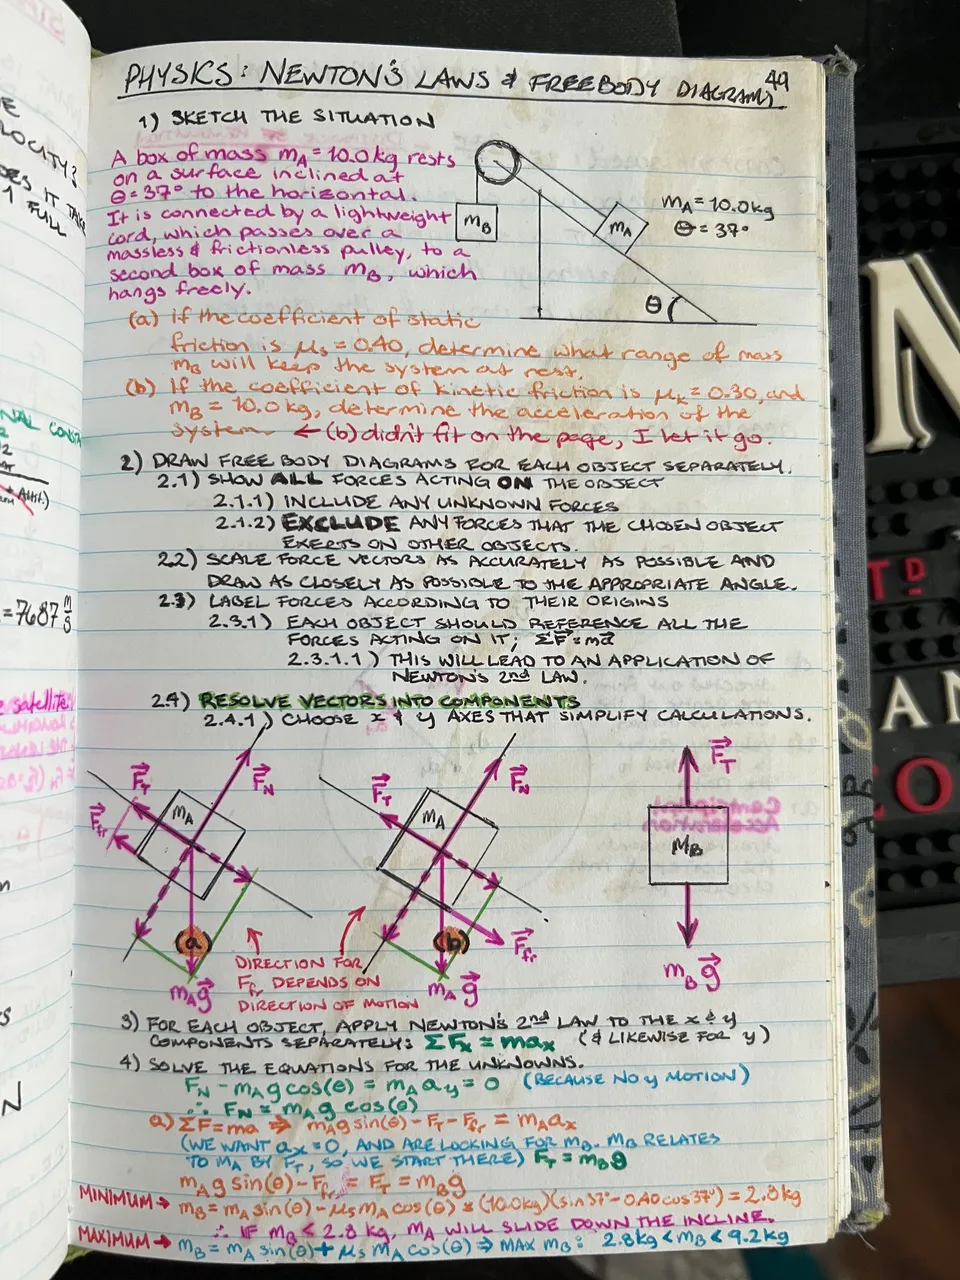 49
PHYSICS: NEWTON'S LAWS & FREEBODY DIAGRAMS
1) SKETCH THE SITUATION
A box of mass mA = 10.0kg rests
on a surface inclined at
θ = 37° to the horizontal.
It is connected by a lightweight
cord, which passes over a
massless & frictionless pulley, to a
second box of mass mB, which
hangs freely.
mB
mA
θ
mA = 10.0kg
θ = 37°
(a) if the coefficient of static
friction is μs = 0.40, determine what range of mass
mB will keep the system at rest.
(b) If the coefficient of kinetic friction is μk = 0.30, and
mB = 10.0kg, determine the acceleration of the
system. ← (b) didn't fit on the page, I let it go.
2) DRAW FREE BODY DIAGRAMS FOR EACH OBJECT SEPARATELY.
2.1) SHOW ALL FORCES ACTING ON THE OBJECT
2.1.1) INCLUDE ANY UNKNOWN FORCES
2.1.2) EXCLUDE ANY FORCES THAT THE CHOSEN OBJECT
EXERTS ON OTHER OBJECTS.
2.2) SCALE FORCE VECTORS AS ACCURATELY AS POSSIBLE AND
DRAW AS CLOSELY AS POSSIBLE TO THE APPROPRIATE ANGLE.
2.3) LABEL FORCES ACCORDING TO THEIR ORIGINS
2.3.1) EACH OBJECT SHOULD REFERENCE ALL THE
FORCES ACTING ON IT; ΣF⃗ = ma⃗
2.3.1.1) THIS WILL LEAD TO AN APPLICATION OF
NEWTON'S 2nd LAW.
2.4) RESOLVE VECTORS INTO COMPONENTS
2.4.1) CHOOSE x & y AXES THAT SIMPLIFY CALCULATIONS.
F⃗T
F⃗N
F⃗fr
mA
(a)
mAg⃗
F⃗T
F⃗N
mA
(b)
F⃗fr
mAg⃗
F⃗T
mB
mBg⃗
DIRECTION FOR
Ffr DEPENDS ON
DIRECTION OF MOTION
3) FOR EACH OBJECT, APPLY NEWTON'S 2nd LAW TO THE x & y
COMPONENTS SEPARATELY: ΣFx = max (& LIKEWISE FOR y)
4) SOLVE THE EQUATIONS FOR THE UNKNOWNS.
FN - mAg cos(θ) = mA ay = 0 (BECAUSE NO y MOTION)
∴ FN = mAg cos(θ)
a) ΣF = ma ⇒ mAg sin(θ) - FT - Ffr = mAax
(WE WANT ax = 0, AND ARE LOOKING FOR mB. mB RELATES
TO mA BY FT, SO WE START THERE) FT = mBg
mAg sin(θ) - Ffr = FT = mBg
MINIMUM → mB = mA sin(θ) - μs mA cos(θ) = (10.0kg)(sin37° - 0.40 cos37°) = 2.8kg
∴ IF mB < 2.8 kg, mA WILL SLIDE DOWN THE INCLINE.
MAXIMUM → mB = mA sin(θ) + μs mA cos(θ) ⇒ MAX mB: 2.8kg < mB < 9.2kg
LOCITY?
1 FULL
= 7687 m/s
satellite
N
TD
AN